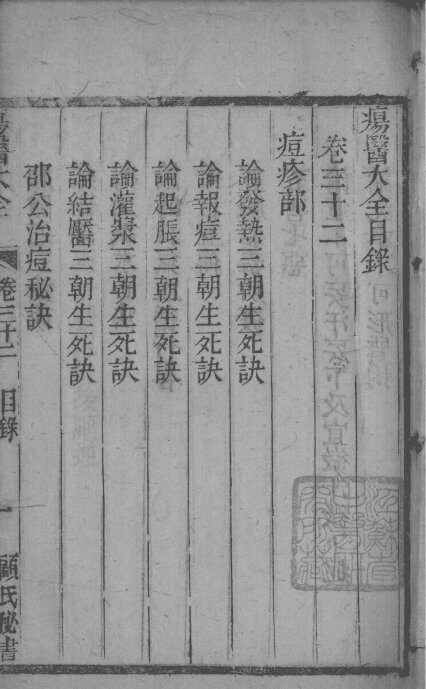 瘍醫大全目錄
卷三十二
痘疹部
論發熱三朝生死訣
論報痘三朝生死訣
論起脹三朝生死訣
論灌漿三朝生死訣
論結靨三朝生死訣
邵公治痘秘訣
瘍醫大全 卷三十二 目錄 一 顧氏秘書